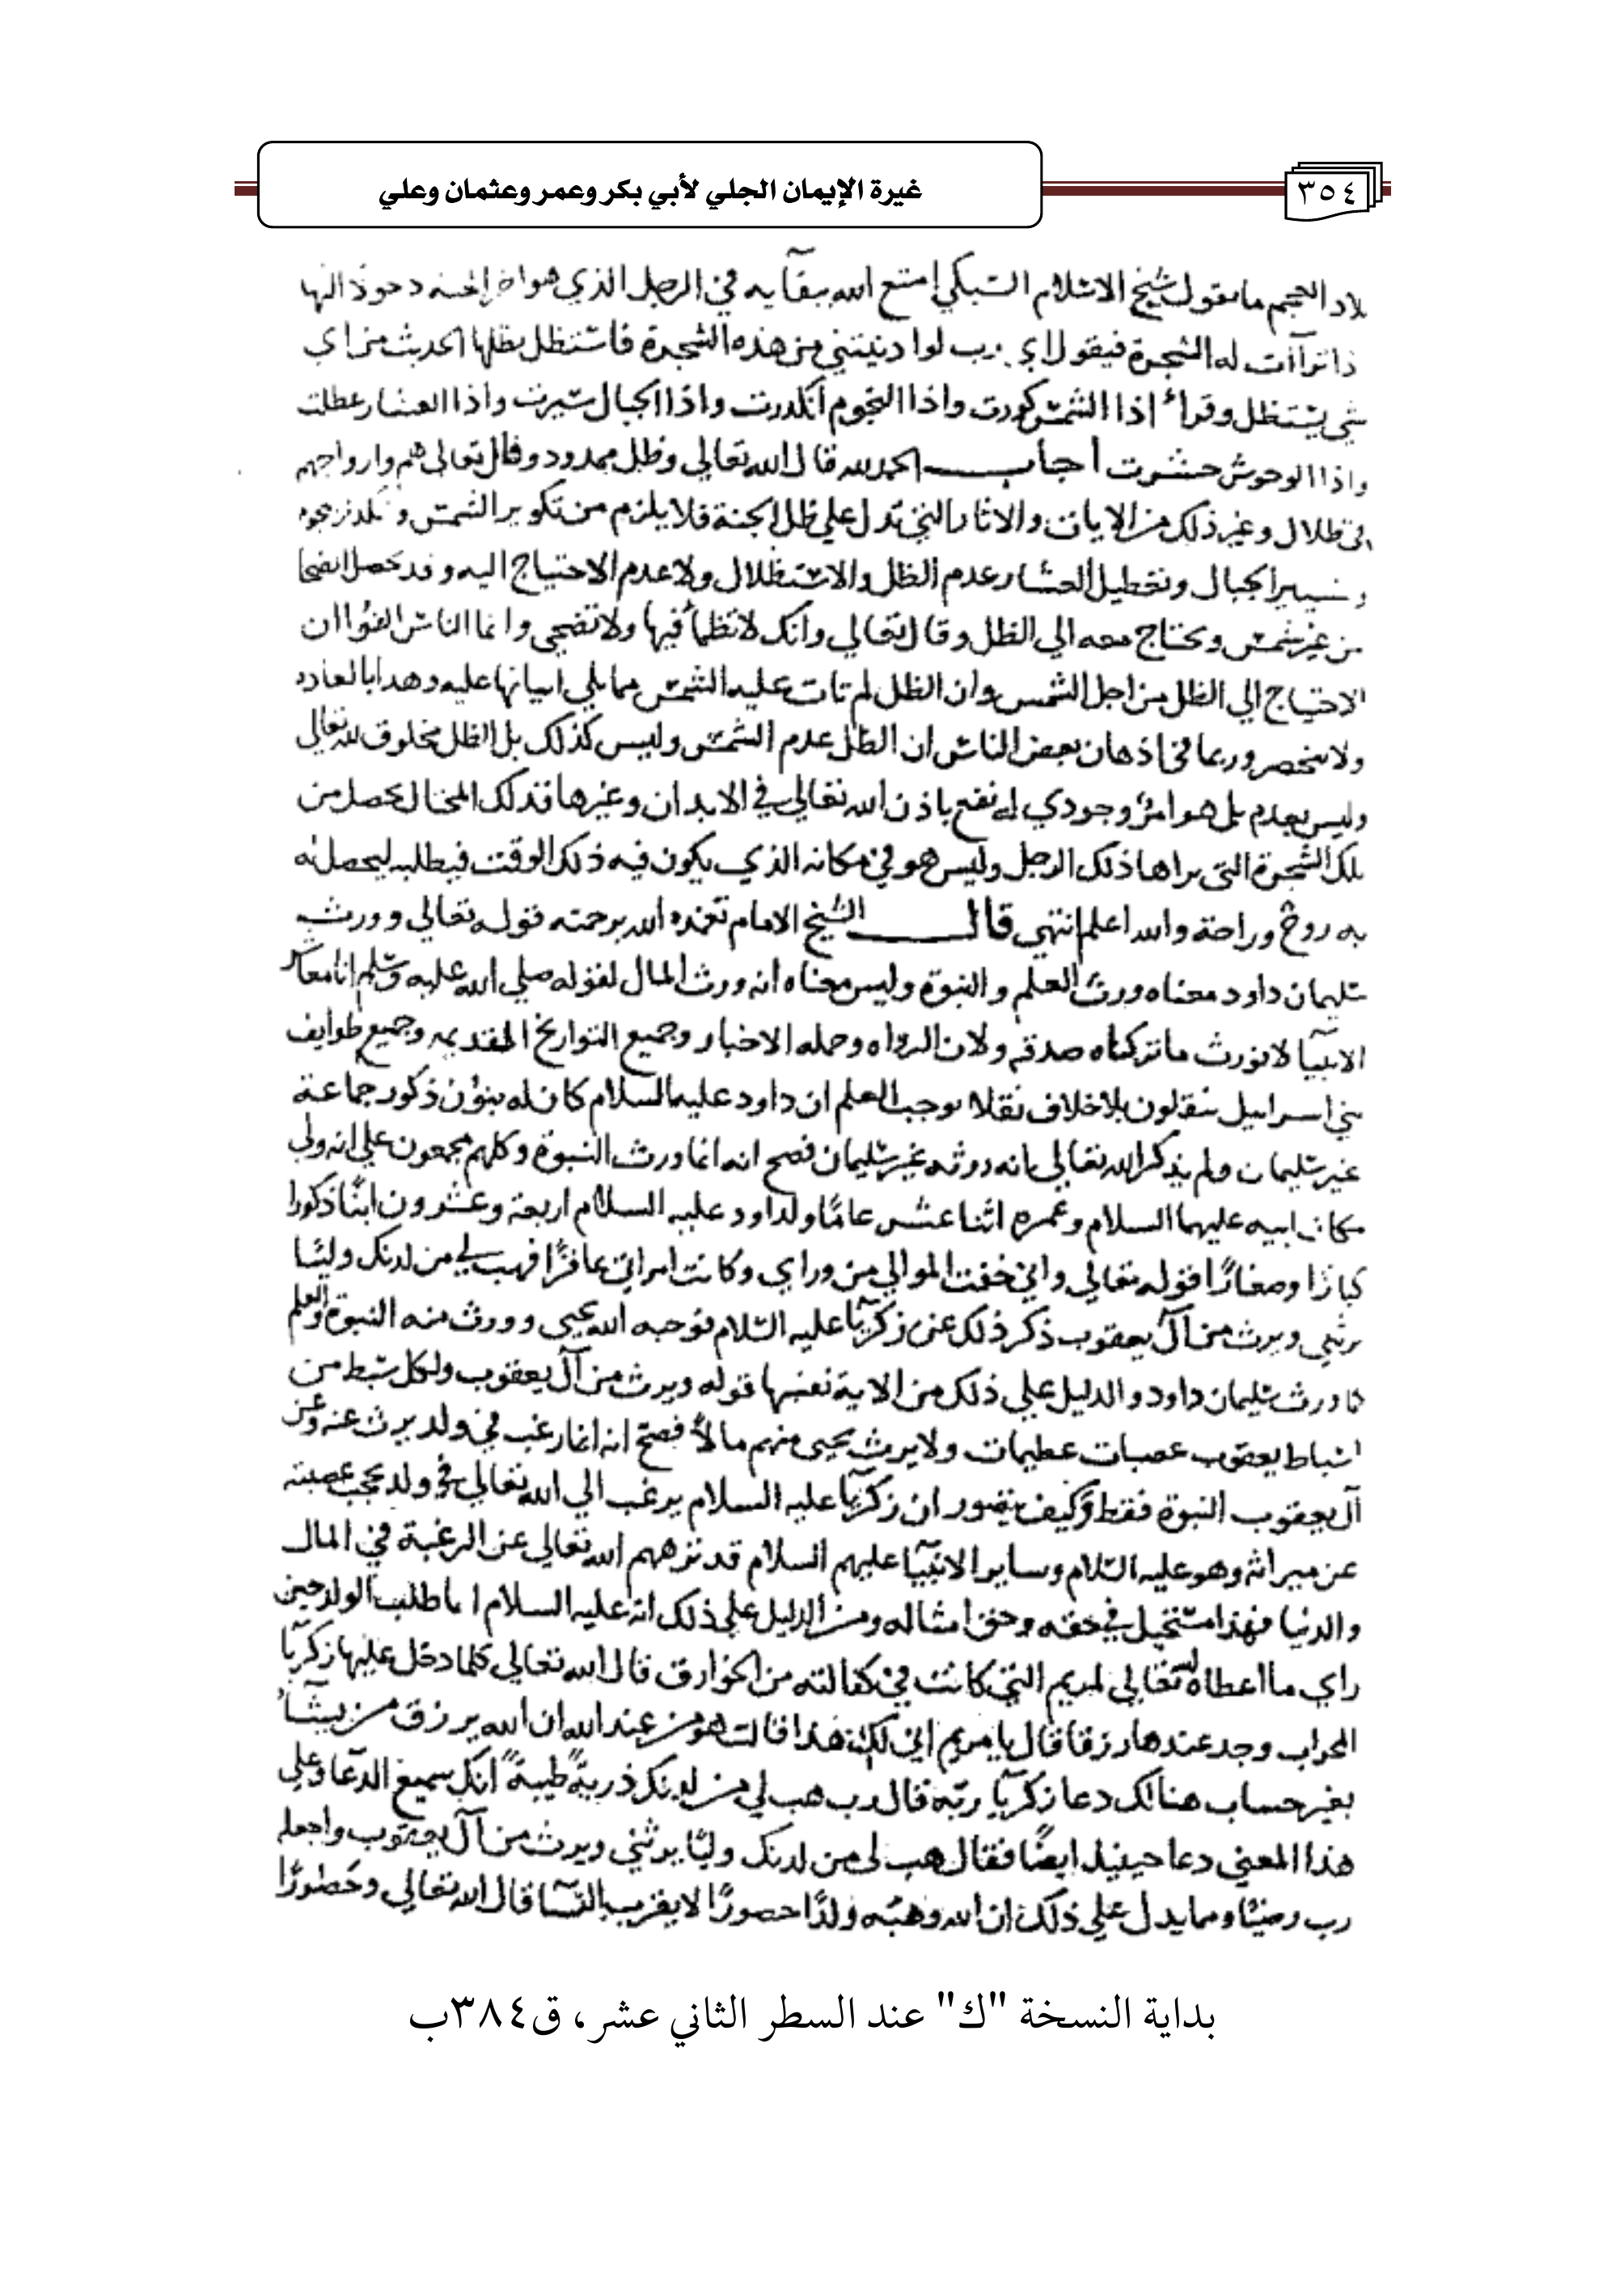 غيرة الإيمان الجلي لأبي بكر وعمر وعثمان وعلي
٣٥٤
بلاد العجم ما يقول شيخ الاسلام السبكي امتع الله ببقآيه في الرجل الذي هو اخر الجنة دخولا اليها
اذا تراآت له الشجرة فيقول اي رب لو ادنيتني من هذه الشجرة فاستظل بظلها الحديث من اي
شي يستظل وقراء اذا الشمس كورت واذا النجوم انكدرت واذا الجبال سيرت واذا العشار عطلت
واذا الوحوش حشرت أجاب الحمد لله قال الله تعالي وظل ممدود وقال تعالى هم وازواجهم
في ظلال وغير ذلك من الايات والاثار التي تدل علي ظل الجنة فلا يلزم من تكوير الشمس و
وتسيير الجبال وتعطيل العشار عدم الظل والاستظلال ولا عدم الاحتياج اليه وقد تحصل
من غير شمس ويحتاج معه الي الظل وقال تعالي وانك لا تظمأ فيها ولا تضحى وانما الناس الفوا ان
الاحتياج الي الظل من اجل الشمس وان الظل لم تات عليه الشمس مما يلي عليه وهذا بالعاده
ولا ينحصر وربما في اذهان بعض الناس ان الظل عدم الشمس وليس كذلك بل الظل مخلوق لله تعالي
وليس بعدم بل هو امر وجودي له نفع باذن الله تعالي في الابدان وغيرها فذلك يحصل من
تلك الشجرة التي يراها ذلك الرجل وليس هو في مكانه الذي يكون فيه ذلك الوقت فيطلبه ليحصل له
به روح وراحة والله اعلم انتهي قال الشيخ الامام تغمده الله برحمته قوله تعالي وورث
سليمان داود معناه ورث العلم والنبوة وليس معناه انه ورث المال لقوله صلي الله عليه وسلم انا معاشر
الانبيآ لا نورث ما تركناه صدقه ولان الرواه وحمله الاخبار وجميع التواريخ القديمه وجميع طوايف
بني اسراييل ينقلون بلا خلاف نقلا يوجب العلم ان داود عليه السلام كان له بنون ذكور جماعة
غير سليمان ولم يذكر الله تعالي انه ورثه غير سليمان فصح انه انما ورث النبوة وكلهم مجمعون علي انه ولي
مكان ابيه عليهما السلام وعمره اثنا عشر عامًا ولداود عليه السلام اربعة وعشرون ابنًا ذكورا
كبارًا وصغارًا قوله تعالي واني خفت الموالي من وراي وكانت امراتي عاقرًا فهب لي من لدنك وليًّا
يرثني ويرث من آل يعقوب ذكر ذلك عن زكريآ عليه السلام فوهبه الله يحيى وورث منه النبوة والعلم
كما ورث سليمان داود والدليل علي ذلك من الاية نفسها قوله ويرث من آل يعقوب ولكل سبط من
اسباط يعقوب عصبات عظيمات ولا يرث يحيى منهم مالاً فصح انه انما رغب في ولد يرث عنه وعن
آل يعقوب النبوة فقط وكيف يتصور ان زكريآ عليه السلام يرغب الي الله تعالي في ولد يحجب عصبته
عن ميراثه وهو عليه السلام وساير الانبيآ عليهم السلام قد نزههم الله تعالي عن الرغبة في المال
والدنيا فهذا مستحيل في حقه وحق امثاله ومن الدليل علي ذلك انه عليه السلام انما طلب الولد حين
راي ما اعطاه الله تعالي لمريم التي كانت في كفالته من الخوارق قال الله تعالي كلما دخل عليها زكريآ
المحراب وجد عندها رزقا قال يا مريم اني لك هذا قالت هو من عند الله ان الله يرزق من يشآء
بغير حساب هنالك دعا زكريآ ربه قال رب هب لي من لدنك ذرية طيبة انك سميع الدعآ وعلي
هذا المعني دعا حينيذ ايضًا فقال هب لي من لدنك وليًّا يرثني ويرث من آل يعقوب واجعله
رب رضيًّا ومما يدل علي ذلك ان الله وهبه ولدًا حصورًا لا يقرب النسآ قال الله تعالي وحصورًا
بداية النسخة "ك" عند السطر الثاني عشر، ق٣٨٤ب